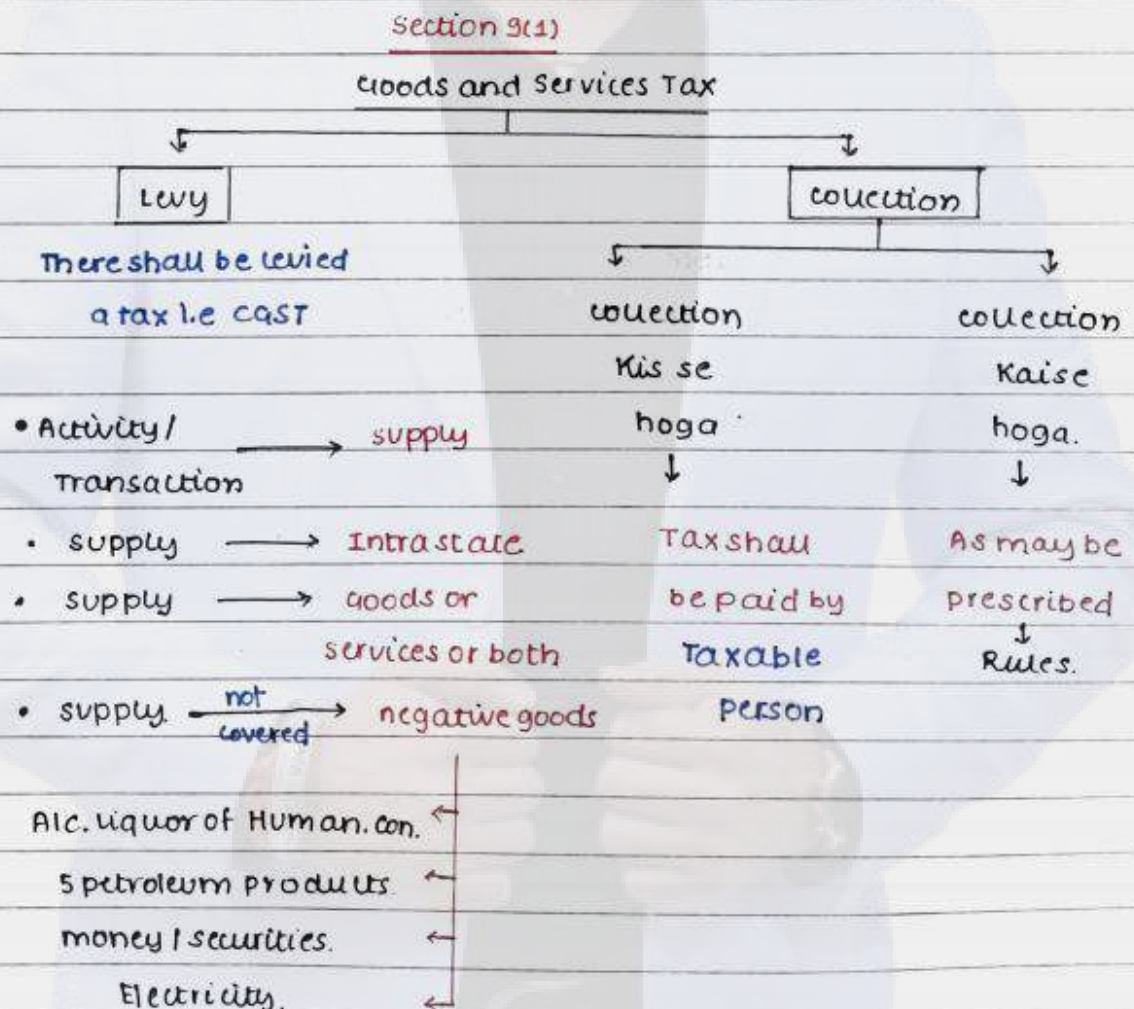 Section 9(1)
Goods and Services Tax
Levy
There shall be levied
a tax i.e CGST
• Activity / → supply
Transaction
• supply → Intrastate
• supply → Goods or
services or both
• supply. not covered → negative goods
Alc. liquor of Human. con.
5 petroleum products
money / securities.
Electricity.
collection
collection
Kis se
hoga
↓
Tax shall
be paid by
Taxable
Person
collection
Kaise
hoga.
↓
As may be
prescribed
↓
Rules.